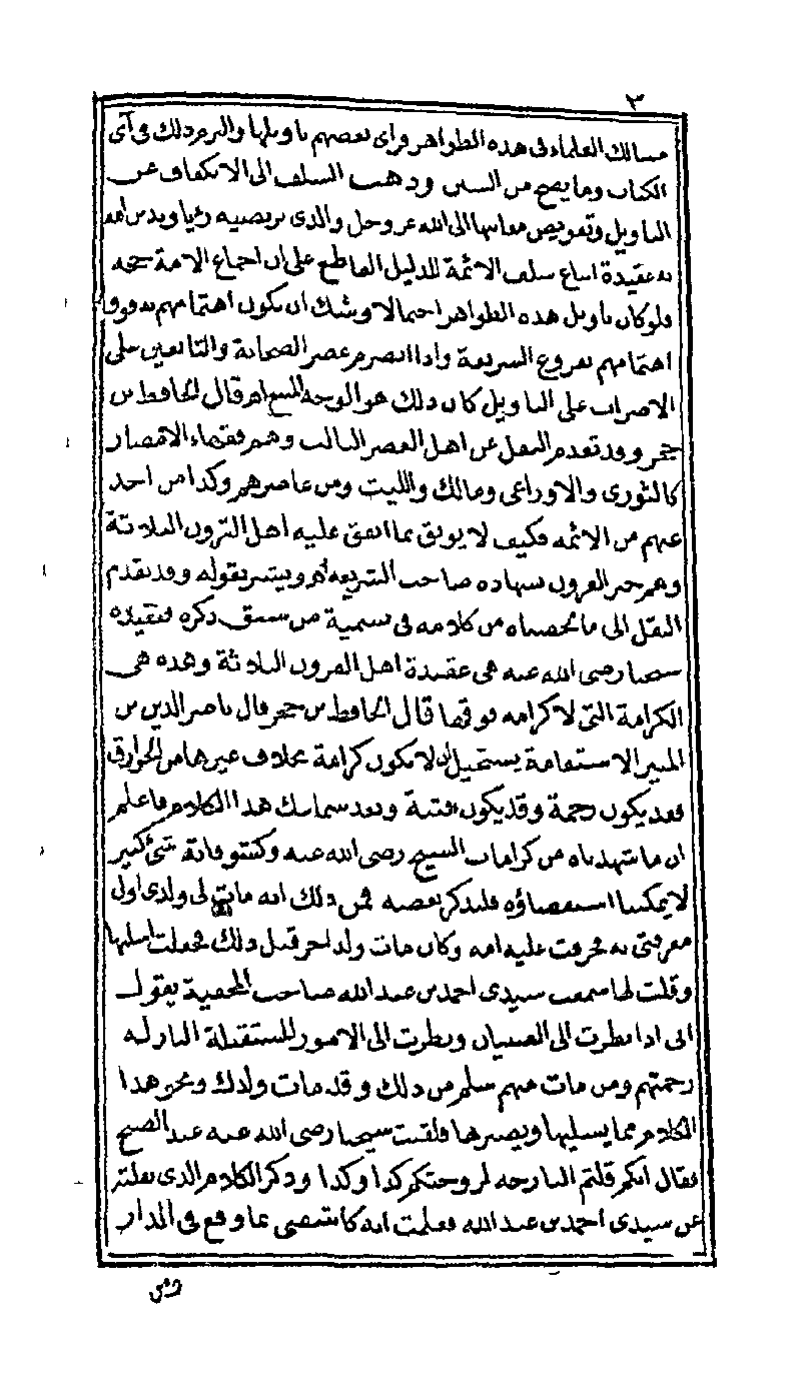 ٣
مسالك العلماء في هذه الظواهر فرأى بعضهم تاويلها والتزم ذلك في آي
الكتاب وما يصح من السنن وذهب السلف الى الانكفاف عن
التاويل وتفويض معانيها الى الله عز وجل والذي نرتضيه رأيا وندين الله
به عقيدة اتباع سلف الائمة للدليل القاطع على ان اجماع الامة حجة
فلو كان تاويل هذه الظواهر احتمالا وشك ان يكون اهتمامهم به فوق
اهتمامهم بفروع الشريعة واذا انصرم عصر الصحابة والتابعين على
الاضراب على التاويل كان ذلك هو الوجه المتبع اهـ قال الحافظ بن
حجر وقد تقدم النقل عن اهل العصر الثالث وهم فقهاء الامصار
كالثوري والاوزاعي ومالك والليث ومن عاصرهم وكذا من اخذ
عنهم من الائمه فكيف لا يوثق بما اتفق عليه اهل القرون الثلاثة
وهم خير القرون بشهاده صاحب الشريعه اهـ ويشير بقوله وقد تقدم
النقل الى ما لخصناه من كلامه في تسمية من سبق ذكره فعقيدة
شيخنا رضي الله عنه هي عقيدة اهل القرون الثلاثة وهذه هي
الكرامة التي لا كرامه فوقها قال الحافظ بن حجر قال ناصر الدين بن
المنير الاستقامة يستحيل ان لا تكون كرامة بخلاف غيرها من الخوارق
فقد يكون رحمة وقد يكون فتنة وبعد سماعك هذا الكلام فاعلم
ان ما شهدناه من كرامات الشيخ رضي الله عنه وكشوفاته شئ كثير
لا يمكننا استقصاؤه فلنذكر بعضه فمن ذلك انه مات لي ولدى اول
معرفتي به فحزنت عليه امه وكان مات ولد اخر قبل ذلك فجعلت اسليها
وقلت لها سمعت سيدي احمد بن عبد الله صاحب المخفية يقول
اني اذا نظرت الى الصبيان ونظرت الى الامور المستقبلة النازله
رحمتهم ومن مات منهم سلم من ذلك وقد مات ولدك ونحو هذا
الكلام مما يسليها ويصبرها فلقيت شيخنا رضي الله عنه عند الصبح
فقال انكم قلتم البارحه لزوجتكم كذا وكذا وذكر الكلام الذي نقلته
عن سيدي احمد بن عبد الله فعلمت انه كاشفني بما وقع في الدار